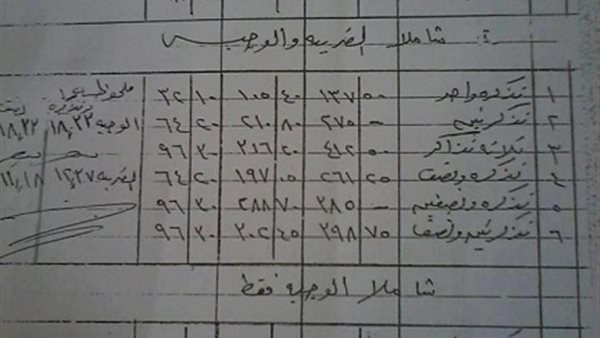 شاملا الضريبه والوجبه
١ تذكره واحد ٥٠ ١٣٧ ٤٠ ١٠٥ ١٠ ٣٢ ملحوظه
٢ تذكرتين - ٢٧٥ ٨٠ ٢١٠ ٢٠ ٦٤ الوجبه ١٨,٢٢ ١٨,٢٢
٣ ثلاثه تذاكر ٥٠ ٤١٢ ٢٠ ٣١٦ ٣٠ ٩٦
٤ تذكره ونصف ٢٥ ٢٦١ ٠٥ ١٩٧ ٢٠ ٦٤ الضريبه ١٢,٢٧ ١١,١٨
٥ تذكره ونصفين - ٣٨٥ ٧٠ ٢٨٨ ٣٠ ٩٦
٦ تذكرتين ونصف ٧٥ ٣٩٨ ٤٥ ٣٠٢ ٣٠ ٩٦
شاملا الوجبه فقط